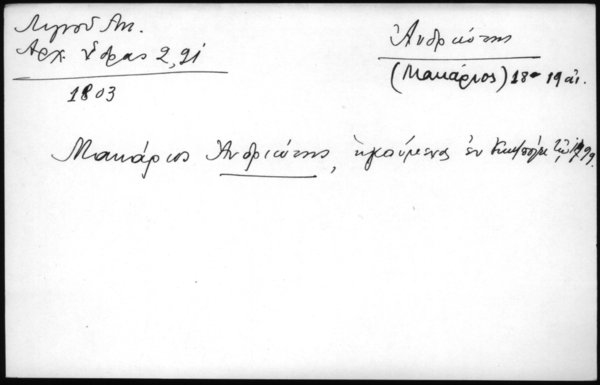 Λιγνοῦ Ἀν.
Ἀρχ. Ὕδρας 2, 21
1803
Ἀνδριώτης
(Μακάριος) 18ο - 19 αἰ.
Μακάριος Ἀνδριώτης, ἡγούμενος ἐν Κων/πόλει 1799.